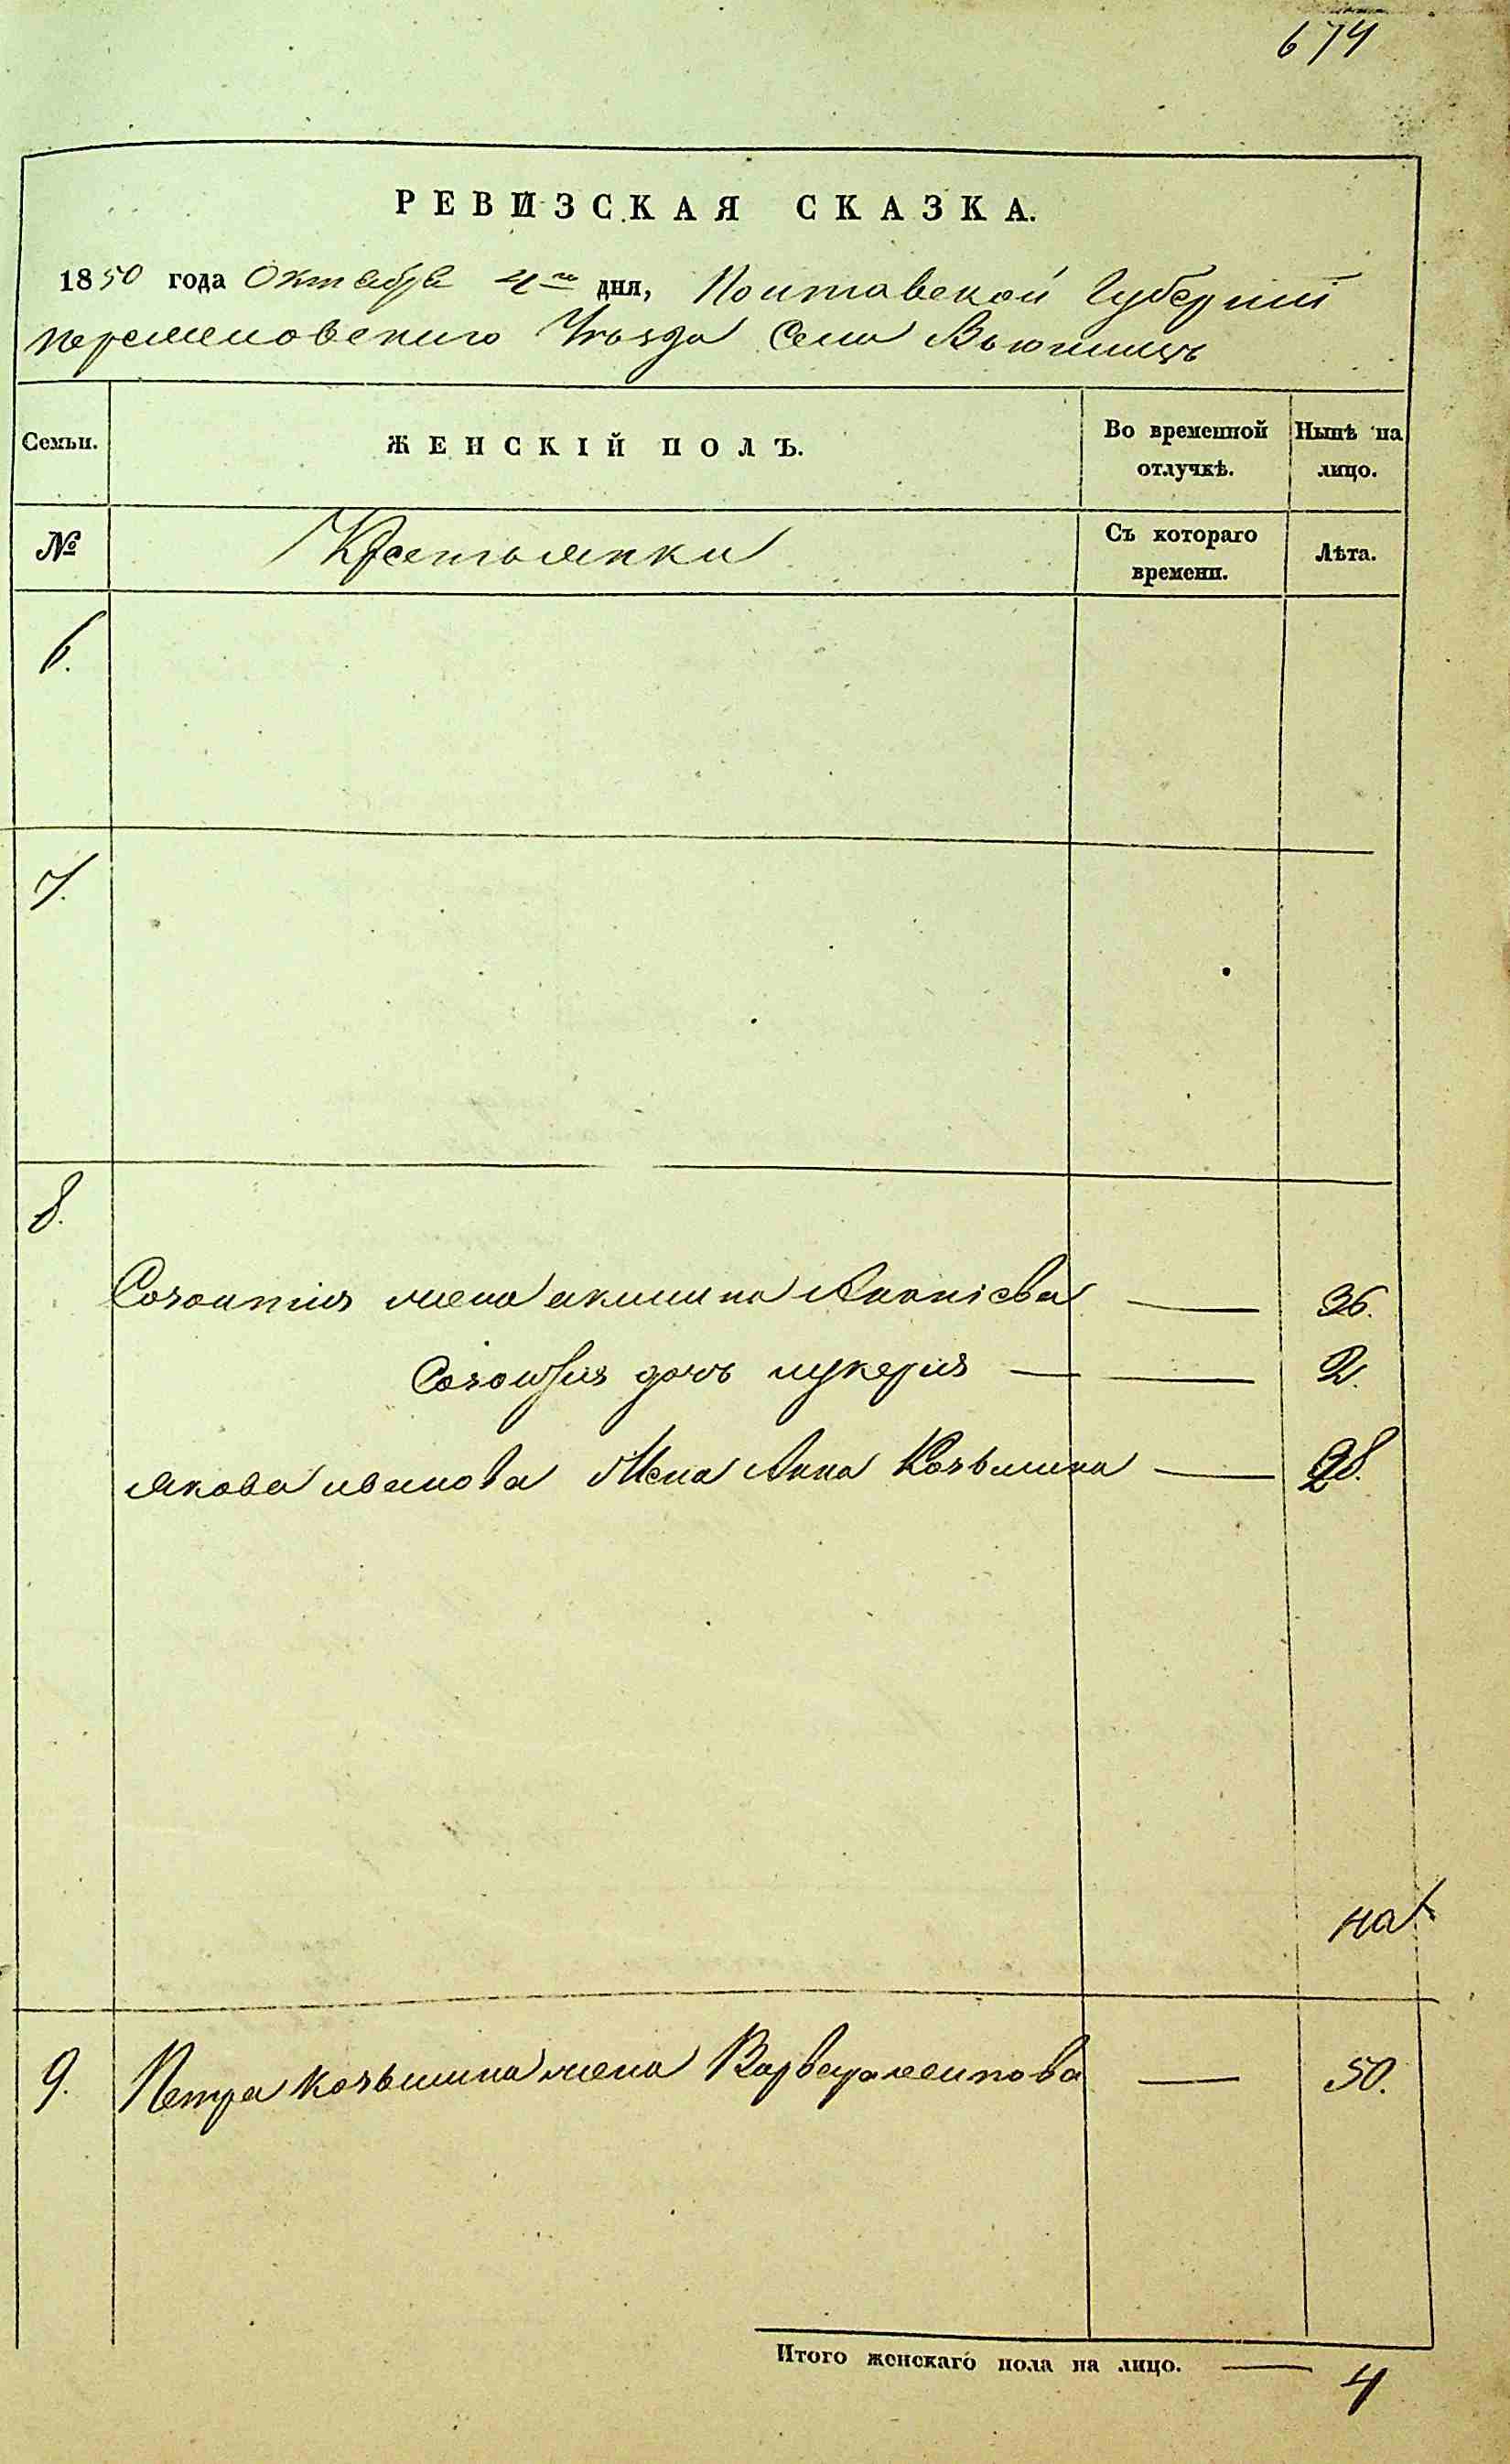 674
РЕВИЗСКАЯ СКАЗКА.
1850 года Октября 4го дня, Полтавской Губернии
Переяславского Уезда Села Вьюнищъ
Семьи. ЖЕНСКІЙ ПОЛЪ. Во временной отлучкѣ. Нынѣ на лицо.
№ Крестьянки Съ котораго времени. Лѣта.
6.
7.
8.
Созонтия жена акилина Ананіева — 36.
Созонтия дочь лукерия — — 2.
якова иванова Жена Анна Козьмина — 28.
на
9. Петра козьмина жена Варвара — 50.
Итого женскаго пола на лицо. — 4